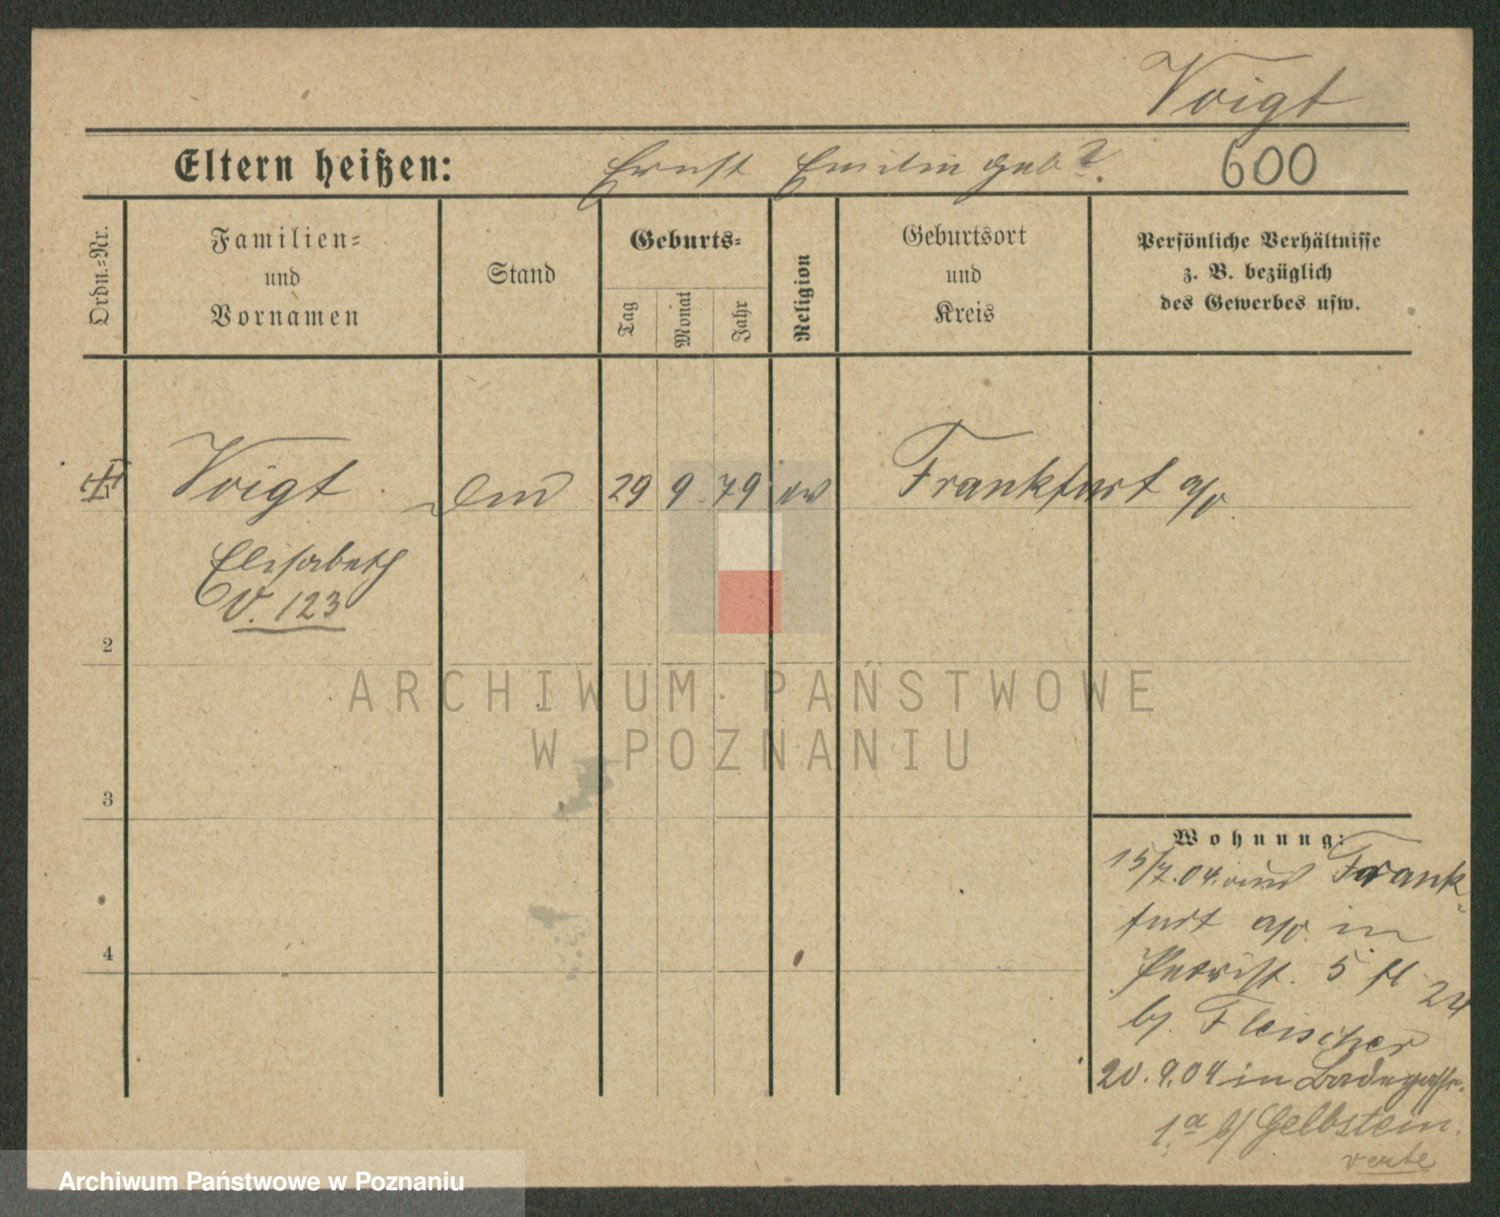 Voigt
Eltern heißen: Ernst Emilie geb ?. 600
Ordn.-Nr.
Familien-
und
Vornamen
Stand
Geburts-
Tag
Monat
Jahr
Religion
Geburtsort
und
Kreis
Persönliche Verhältnisse
z. B. bezüglich
des Gewerbes usw.
Voigt 29 9 79 ev Frankfurt a/o
Elisabeth
V. 123
2
3
4
ARCHIWUM PAŃSTWOWE
W POZNANIU
Wohnung:
15/7.04 aus Frank-
furt a/o. in
5 II 24
b/. Fleischer
20.9.04 in Badegasse.
1.a b/ Gelbstein.
verte
Archiwum Państwowe w Poznaniu